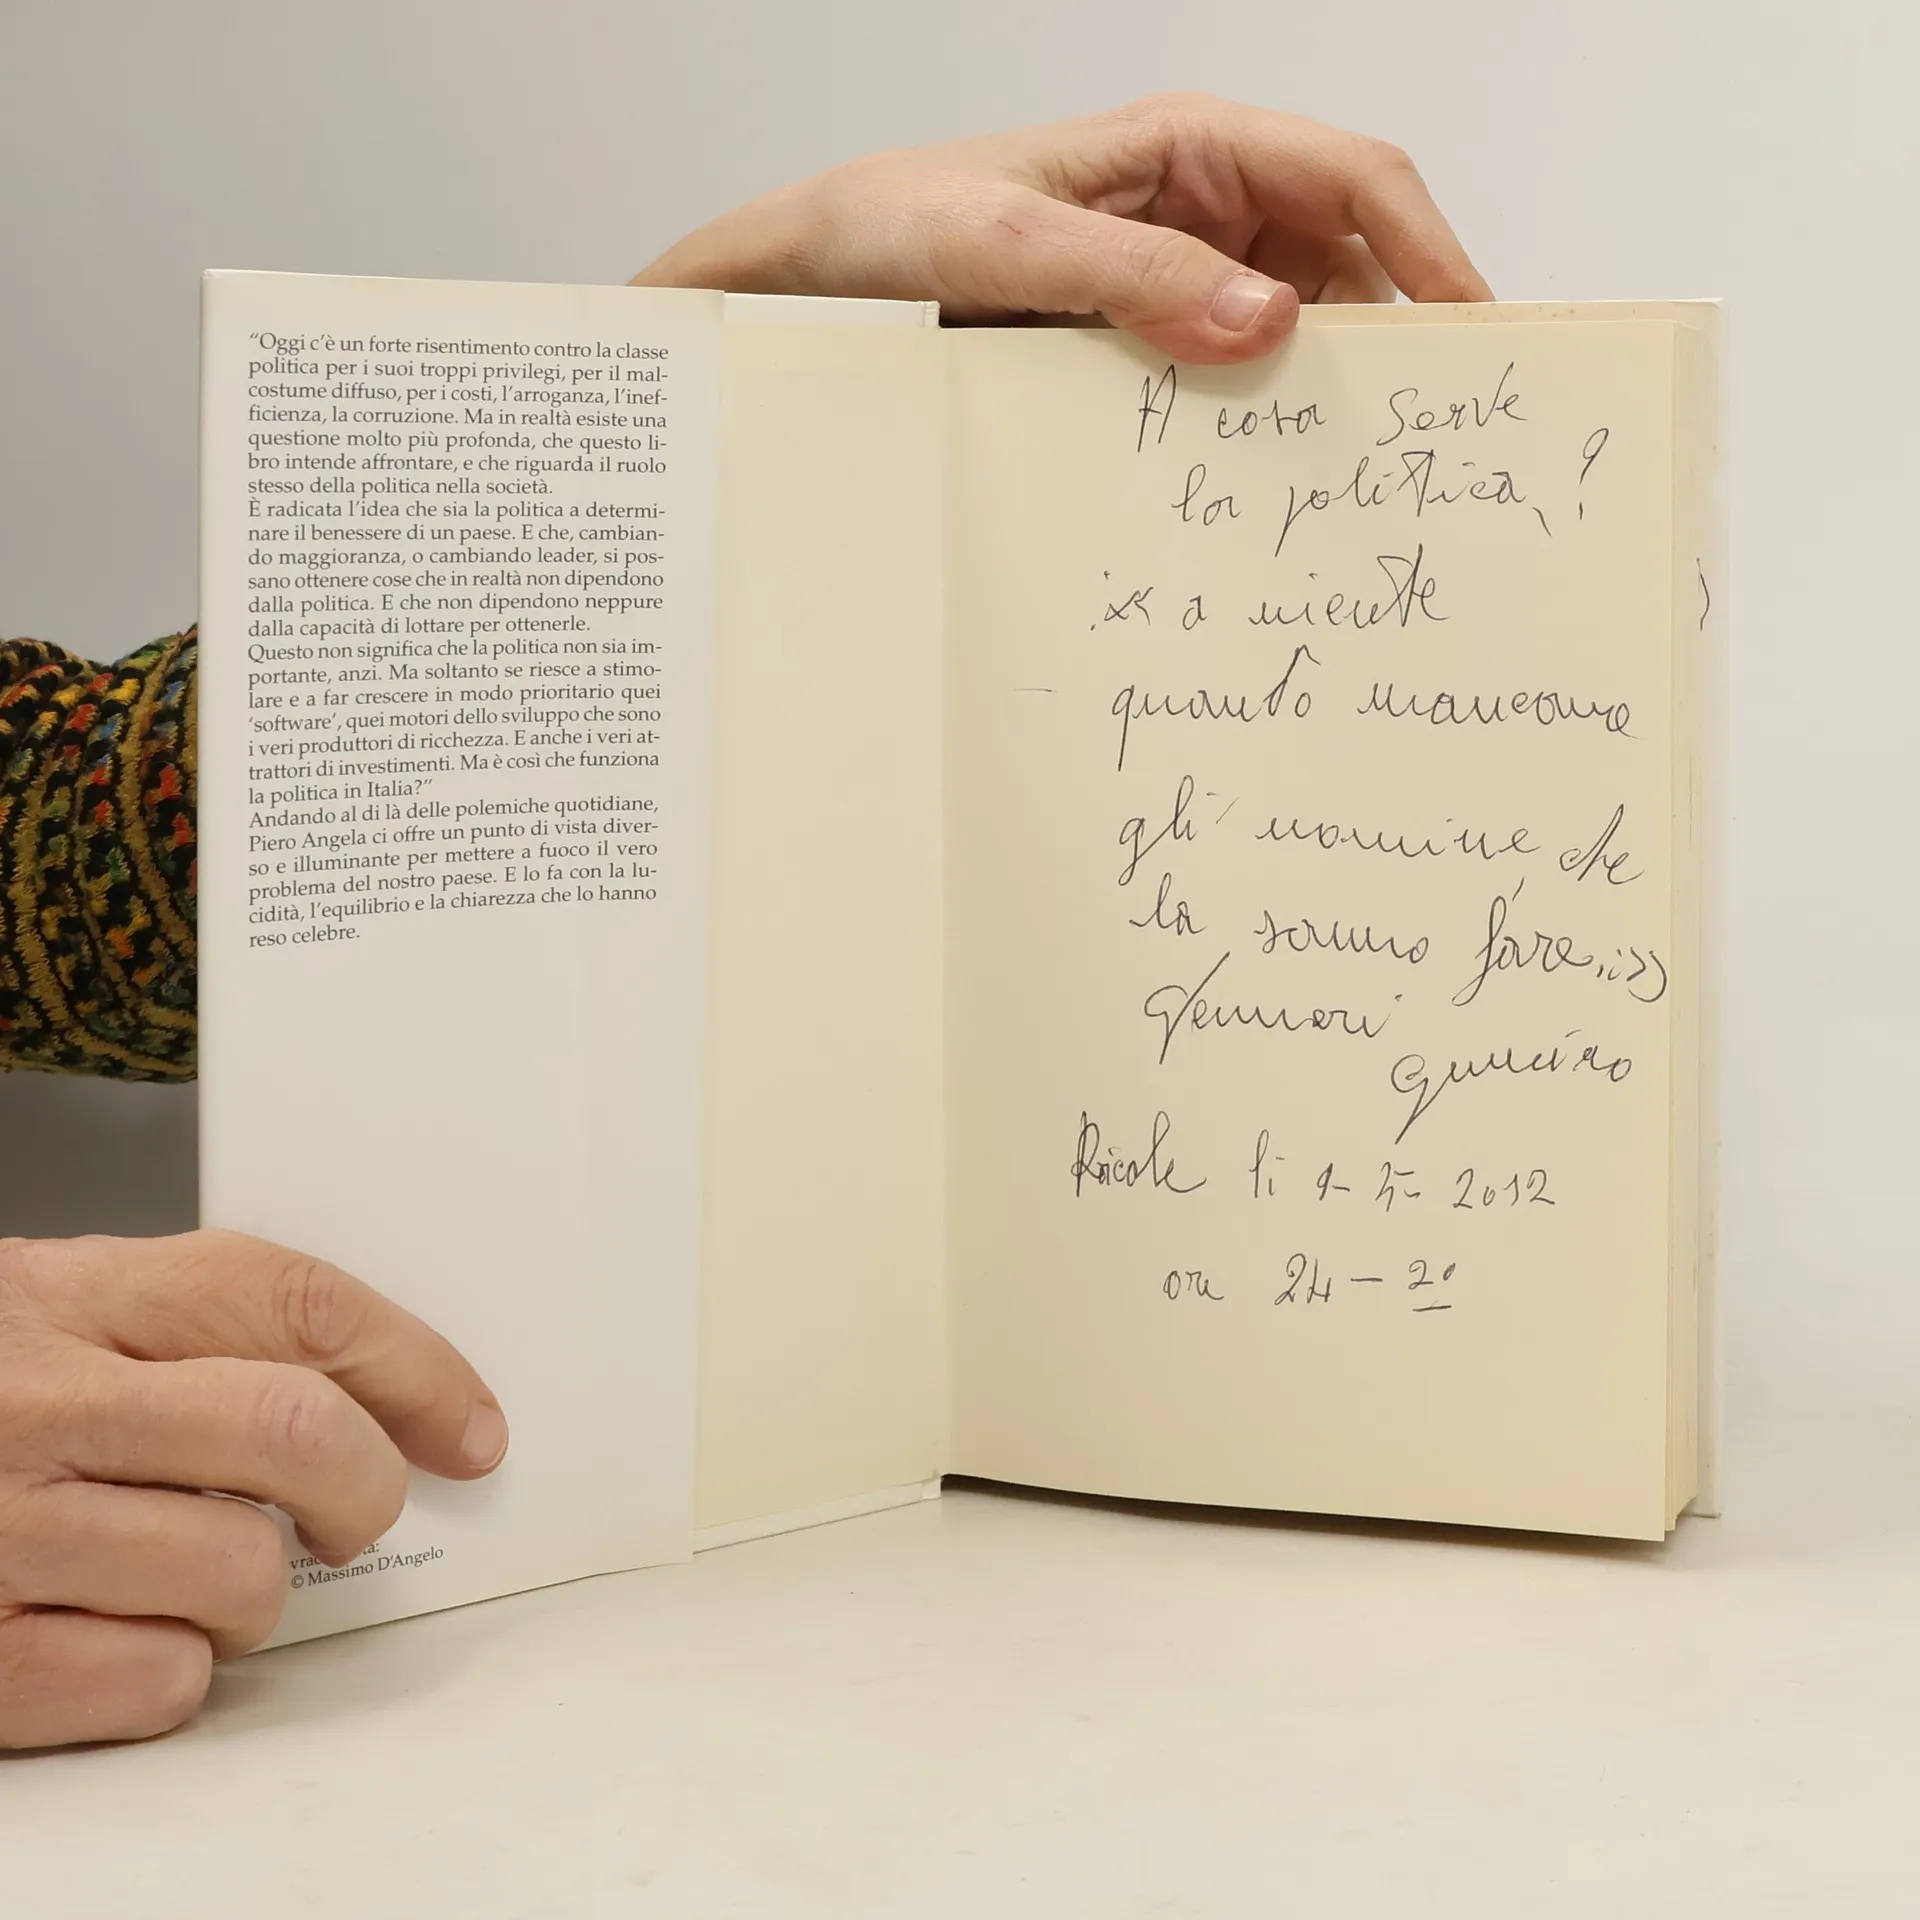 “Oggi c’è un forte risentimento contro la classe
politica per i suoi troppi privilegi, per il mal-
costume diffuso, per i costi, l’arroganza, l’inef-
ficienza, la corruzione. Ma in realtà esiste una
questione molto più profonda, che questo li-
bro intende affrontare, e che riguarda il ruolo
stesso della politica nella società.
È radicata l’idea che sia la politica a determi-
nare il benessere di un paese. E che, cambian-
do maggioranza, o cambiando leader, si pos-
sano ottenere cose che in realtà non dipendono
dalla politica. E che non dipendono neppure
dalla capacità di lottare per ottenerle.
Questo non significa che la politica non sia im-
portante, anzi. Ma soltanto se riesce a stimo-
lare e a far crescere in modo prioritario quei
‘software’, quei motori dello sviluppo che sono
i veri produttori di ricchezza. E anche i veri at-
trattori di investimenti. Ma è così che funziona
la politica in Italia?”
Andando al di là delle polemiche quotidiane,
Piero Angela ci offre un punto di vista diver-
so e illuminante per mettere a fuoco il vero
problema del nostro paese. E lo fa con la lu-
cidità, l’equilibrio e la chiarezza che lo hanno
reso celebre.
© Massimo D’Angelo
A cosa serve
la politica?
a niente
quando mancano
gli uomini che
la sanno fare
Gennari
li 2012
ore 24 - 20